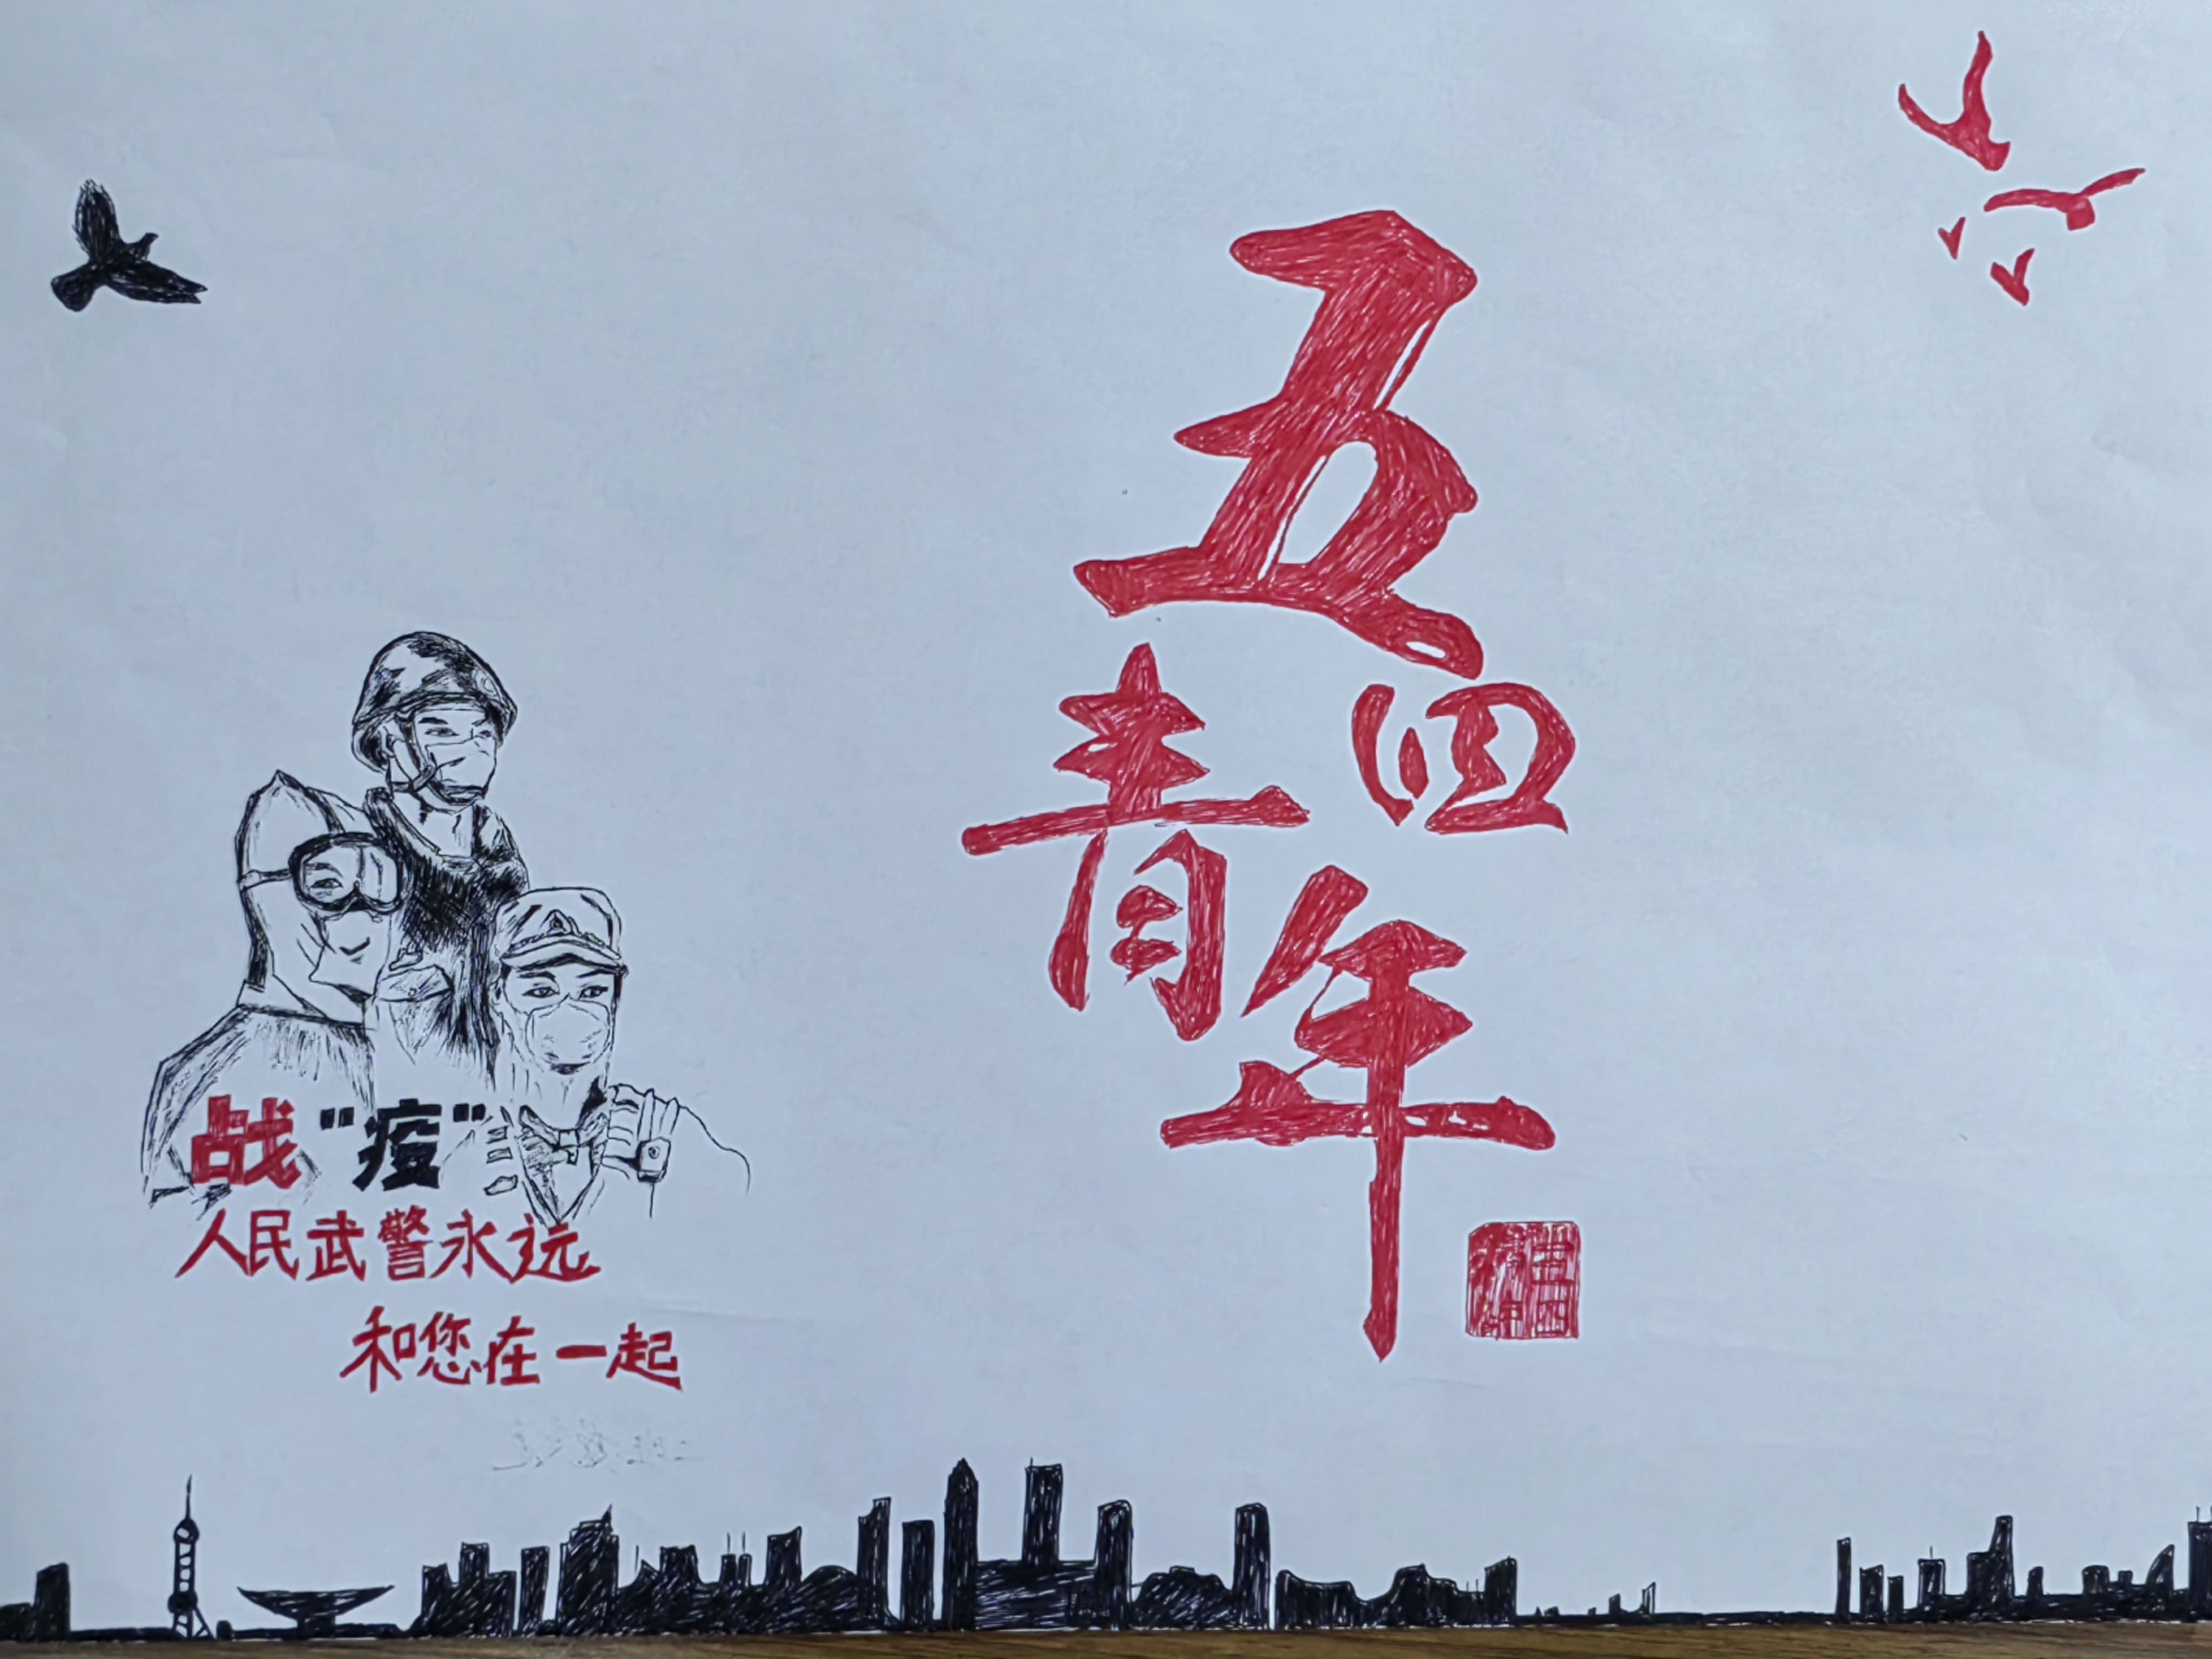 五四
青年
五四
战"疫"
人民武警永远
和您在一起